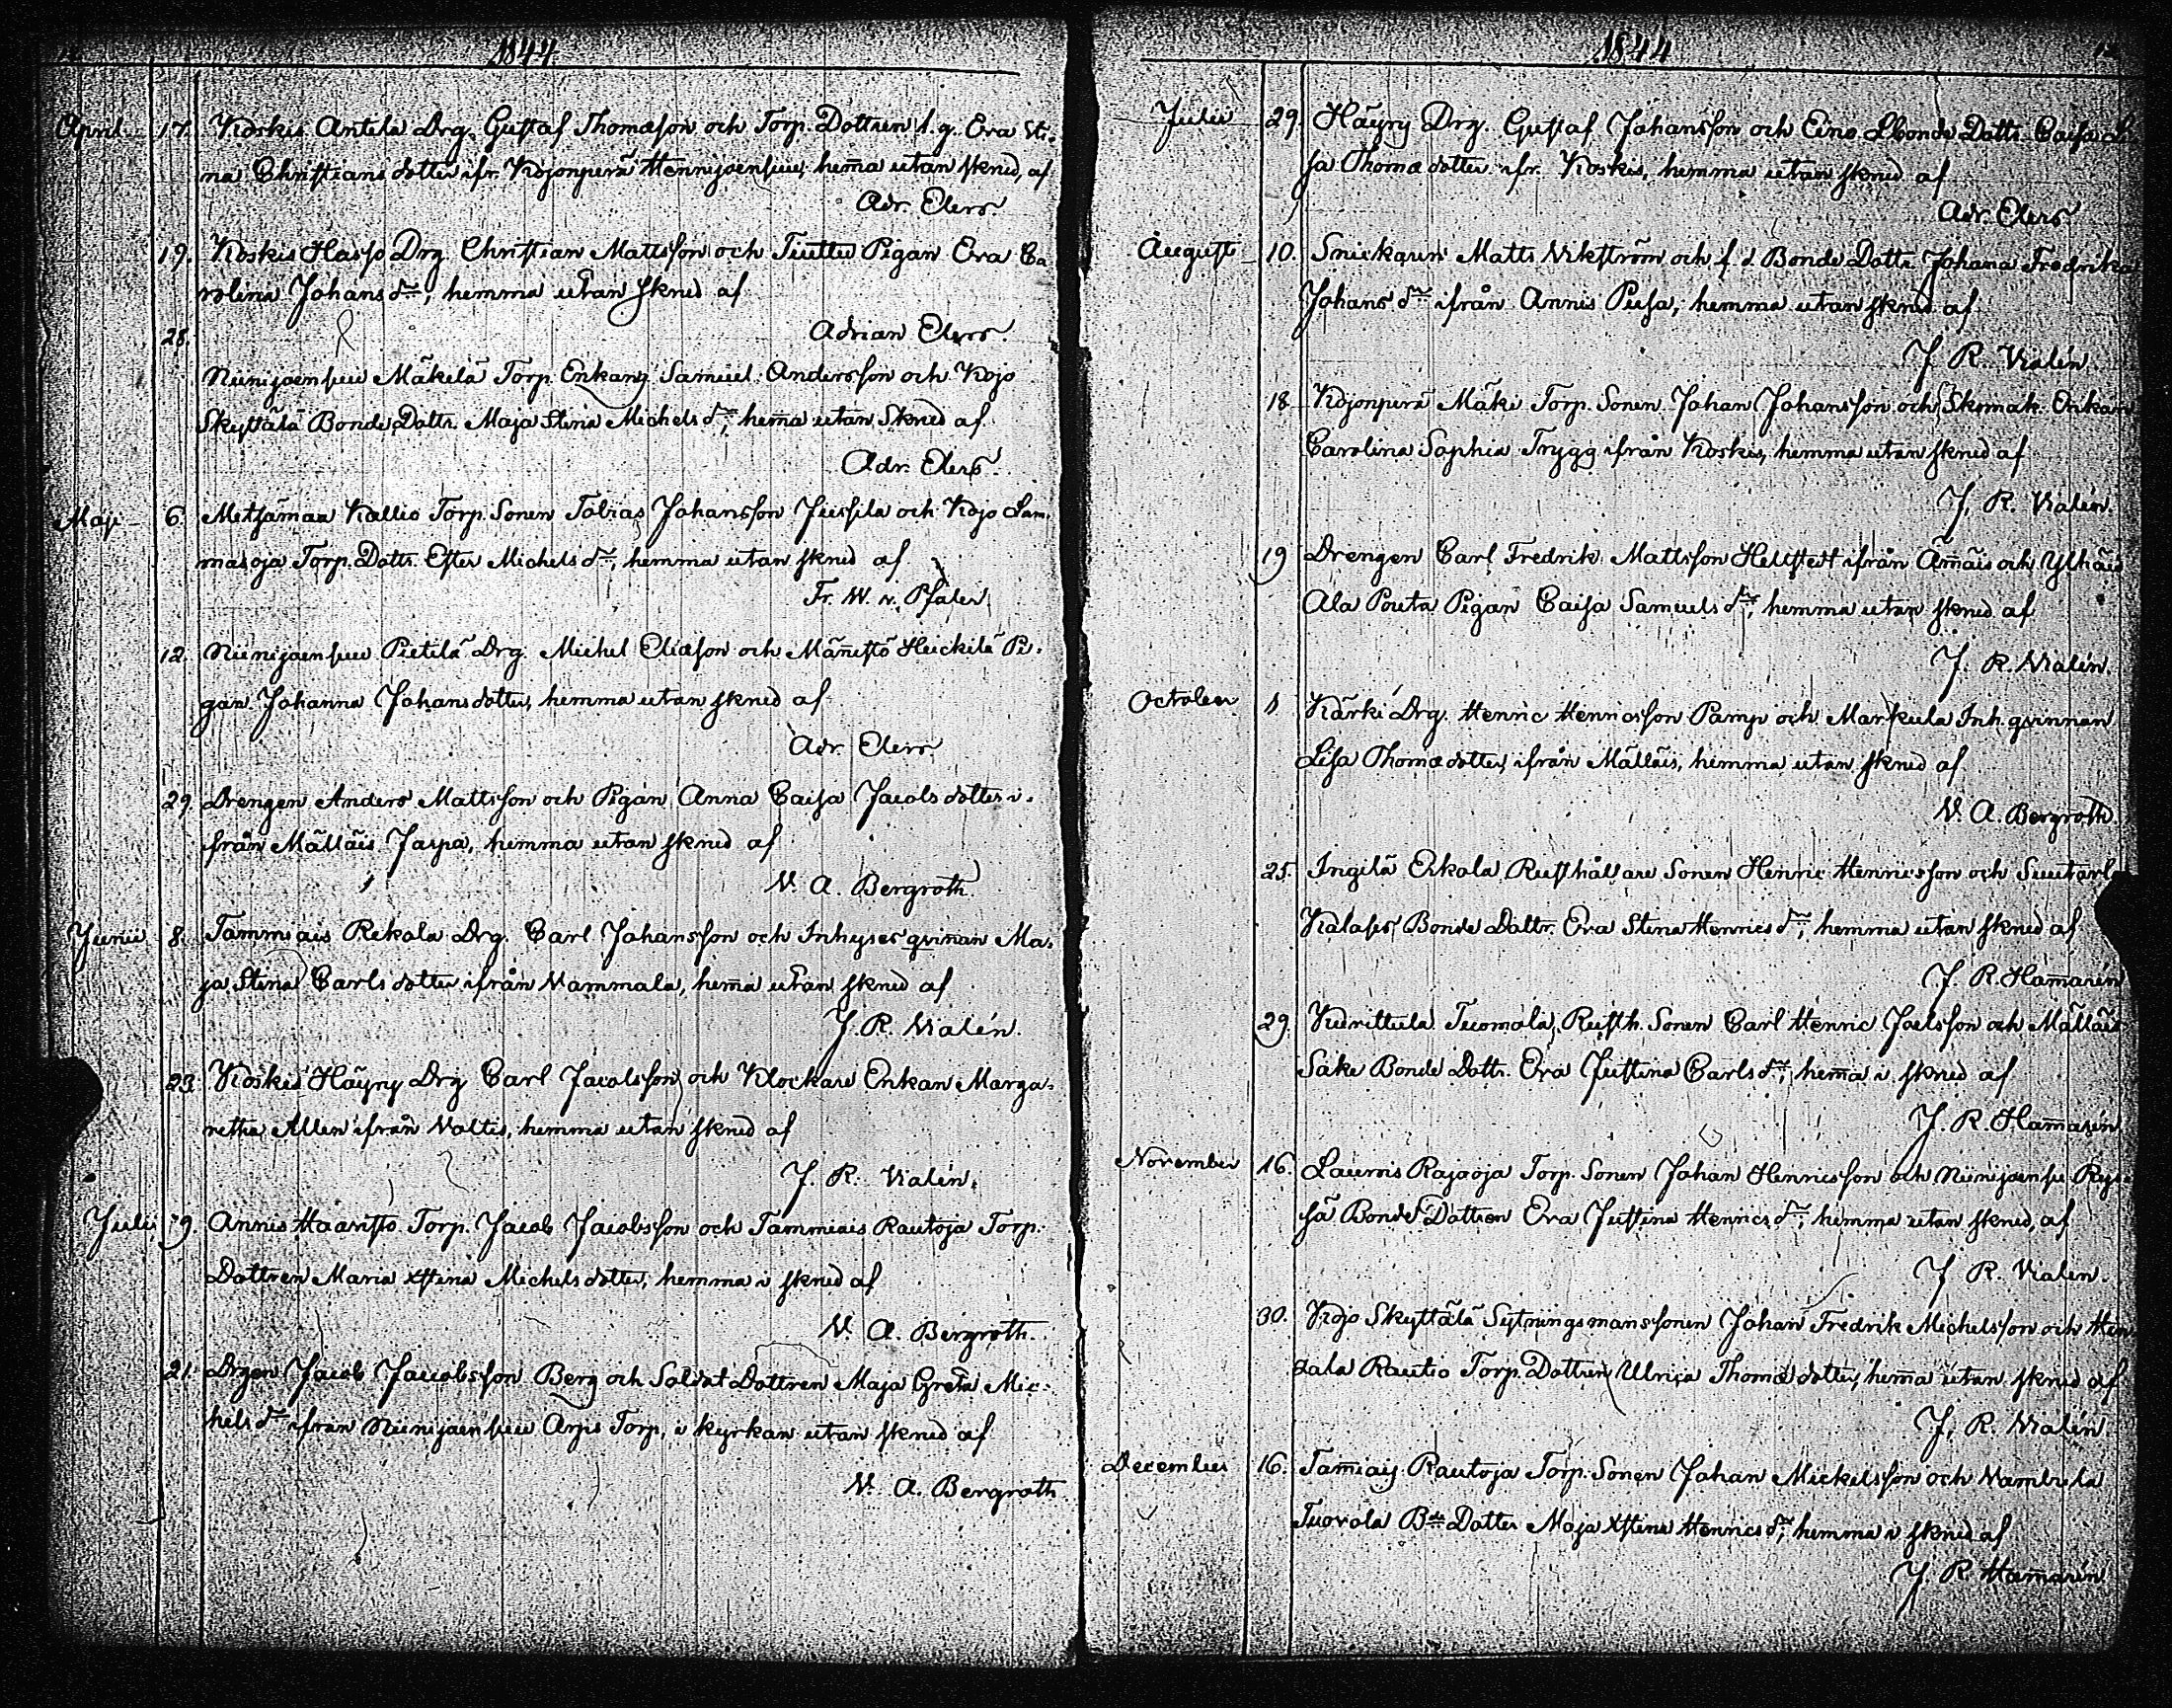 1844
April 17. Koskis Antela Drg. Gustaf Thomasson och Torp. Dottren l. g. Eva Sti-
na Christians dotter ifr. Kojonperä Hennijoensuu, hemma utan skrud, af
Adr. Elers.
19. Koskis Hasso Drg. Christian Mattsson och Tuittu Pigan Eva Ca
rolina Johans dr, hemma utan skrud af
Adrian Elers.
28.
Niinijoensuu Mäkelä Torp. Enkang Samuel Andersson och Kojo
Skyttälä Bonde Dottr. Maja Stina Michels dr, hemma utan skrud af
Adr. Elers.
Maji 6. Metsämaa Kallio Torp. Sonen Tobias Johansson Jussila och Kojo Lam-
masoja Torp. Dottr. Ester Michels dr, hemma utan skrud af
Fr. W. v. Pfaler
12. Niinijoensuu Pietilä Drg. Michel Eliasson och Mannistö Heickilä Pi-
gan Johanna Johans dotter, hemma utan skrud af
Adr. Elers
29. Drengen Anders Mattsson och Pigan Anna Caisa Jacobs dotter i-
från Mälläis Jaspa, hemma utan skrud af
V. A. Bergroth
Junii 8. Tammiais Rekola Drg. Carl Johansson och Inhyses qvinnan Ma-
ja Stina Carls dotter ifrån Vammala, hemma utan skrud af
J. R. Vialén.
23. Koskis Häyny Drg Carl Jacobsson och Klockare Enkan Marga-
retha Allen ifrån Valtis, hemma utan skrud af
J. R. Vialén.
Julii 9. Annis Haaristo Torp. Jacob Jacobsson och Tammiais Rautoja Torp.
Dottren Maria Xstina Michels dotter, hemma i skrud af
V. A. Bergroth.
21. Drgen Jacob Jacobsson Berg och Soldat Dottren Maja Greta Mic-
hels dr ifrån Niinijoensuu Arpis Torp, i kyrkan utan skrud af
V. A. Bergroth
1844
Julii 29. Häyny Drg. Gustaf Johansson och Eino Lbonde Dottr. Caisa
sa Thomæ dotter ifr. Koskis, hemma utan skrud af
Adr. Elers
Augusti 10. Snickarn Matts Vikström och f. d. Bonde Dottr Johana Fredrika
Johans dr ifrån Annis Pusa, hemma utan skrud af
J R. Vialén
18 Kojonperä Mäki Torp. Sonen Johan Johansson och Skomak. Enkan
Carolina Sophia Trygg ifrån Koskis, hemma utan skrud af
J. R. Vialén.
19 Drengen Carl Fredrik Mattsson Hellstedt ifrån Ämäis och Ylhäis
Ala Pouta Pigan Caisa Samuels dr, hemma utan skrud af
J. R. Vialén.
October 1 Kärki Drg. Henric Henricsson Pamp och Markula Inh. qvinnan
Lisa Thomæ dotter ifrån Mälläis, hemma utan skrud af
V. A. Bergroth.
25. Ingilä Erkola Rusthållare Sonen Henric Henricsson och
Kalases Bonde Dottr. Eva Stina Henrics dr, hemma utan skrud af
J. R. Hamarén
29. Kurittula Tuomola Rusth. Sonen Carl Henric Joelsson och Mälläis
Sake Bonde Dottr. Eva Justina Carls dr, hemma i skrud af
J R. Hamarén
November 16. Rajaoja Torp. Sonen Johan Henricsson och Niinijoensu
sä Bonde Dottren Eva Justina Henrics dr, hemma utan skrud, af
J R. Vialen.
30. Kojo Skyttälä Sytningsmanssonen Johan Fredrik Michelsson och Hen
zala Rautio Torp. Dottren Ulrica Thomæ dotter, hemma utan skrud af
J. R. Vialén
December 16. Tammiais Rautoja Torp. Sonen Johan Mickelsson och Vambula
Tuovola Bde Dotter Maja Xstina Henrics dr, hemma i skrud af
J R Hamarén